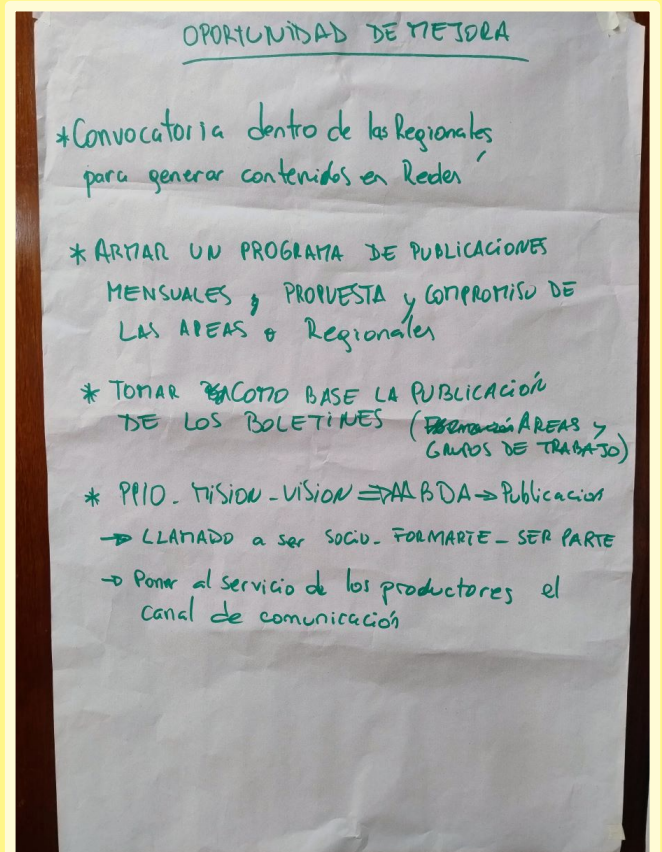 OPORTUNIDAD DE MEJORA
* Convocatoria dentro de las Regionales
para generar contenidos en Redes
* ARMAR UN PROGRAMA DE PUBLICACIONES
MENSUALES, PROPUESTA y COMPROMISO DE
LAS AREAS o Regionales
* TOMAR COMO BASE LA PUBLICACIÓN
DE LOS BOLETINES (AREAS y
GRUPOS DE TRABAJO)
* PPIO - MISION - VISION ⇒ AABDA → Publicacion
→ LLAMADO a ser socio - FORMARTE - SER PARTE
→ Poner al servicio de los productores el
canal de comunicación